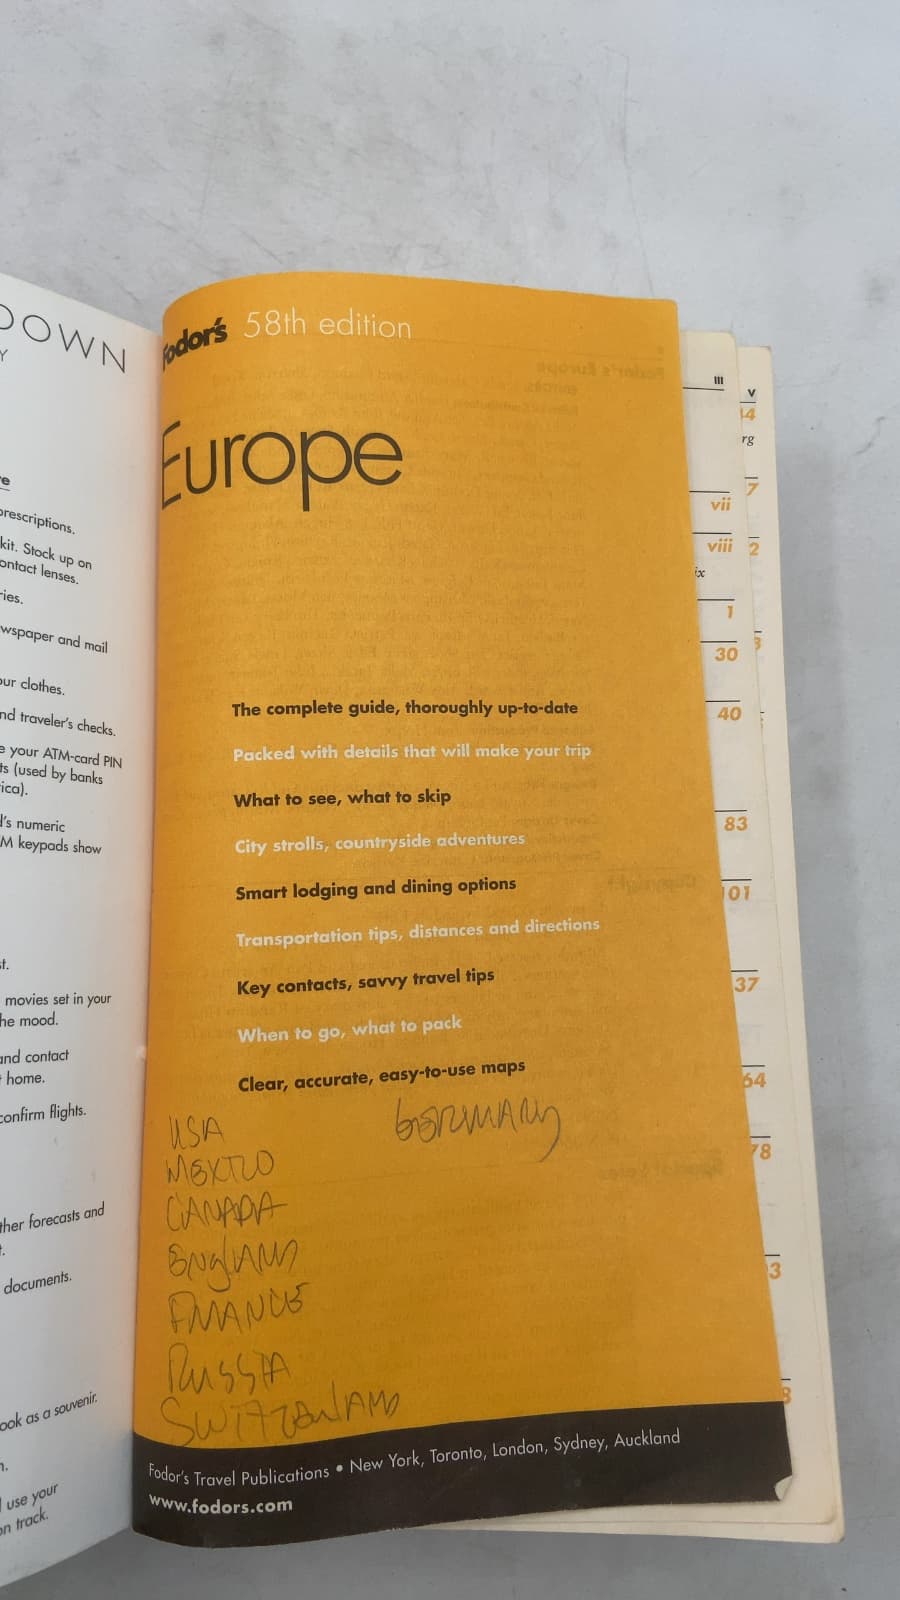 DOWN
Y
re
prescriptions.
kit. Stock up on
ontact lenses.
ries.
wspaper and mail
our clothes.
nd traveler's checks.
e your ATM-card PIN
ts (used by banks
ica).
d's numeric
M keypads show
st.
movies set in your
he mood.
and contact
t home.
confirm flights.
ther forecasts and
t.
documents.
ook as a souvenir.
n.
l use your
on track.
Fodor's 58th edition
Europe
The complete guide, thoroughly up-to-date
Packed with details that will make your trip
What to see, what to skip
City strolls, countryside adventures
Smart lodging and dining options
Transportation tips, distances and directions
Key contacts, savvy travel tips
When to go, what to pack
Clear, accurate, easy-to-use maps
USA GERMANy
MEXICO
CANADA
ENgLANd
FRANCE
RUSSIA
SWITZERLAND
Fodor's Travel Publications • New York, Toronto, London, Sydney, Auckland
www.fodors.com
iii
vii
viii
ix
1
30
40
83
101
37
64
78
93
v
rg
7
2